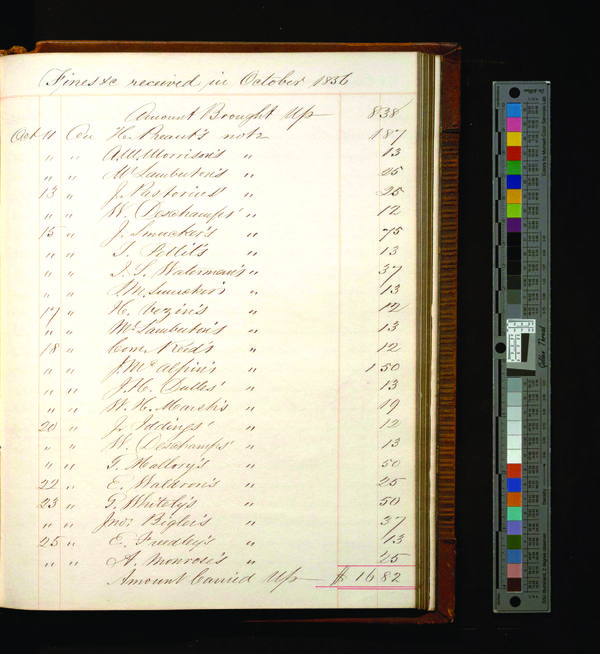 Fines &c received in October 1836
Amount Brought Up 838
Oct 11 On H. Beaut's note 187
" " A.W. Morrison's " 13
" " Mc Lamberton's " 25
13 " J. Pastorius' " 25
" " W. Deschamps' " 12
15 " J. Smucker's " 75
" " T. Pollit's " 13
" " I. S. Waterman's " 37
" " S.M. Smucker's " 13
17 " H. Vezin's " 12
" " Mc Lamberton's " 13
18 " Com Reed's " 12
" " J. McAlpin's " 1 50
" " J. H. Dulles' " 13
" " W. H. Marsh's " 19
20 " J. Iddings' " 12
" " W. Deschamps' " 13
" " G. Mallory's " 50
22 " E. Waldron's " 25
23 " G. Whitely's " 50
" " Jno: Bigler's " 37
25 " E. Freedley's " 13
" " A. Monrose's " 25
Amount Carried Up $ 16 82